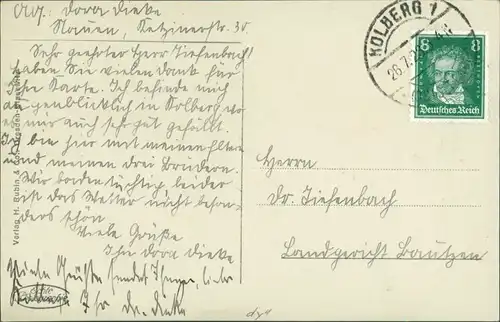 Adr. Dora Dieke
Nauen, Ketzinerstr. 30.
Sehr geehrter Herr Tiefenbach!
Haben Sie vielen Dank für
Ihre Karte. Ich befinde mich
augenblicklich in Kolberg wo
es mir auch sehr gut gefällt.
Ich bin hier mit meinen Eltern
und meinen drei Brüdern.
Wir baden tüchtig, leider
ist das Wetter nicht beson-
ders schön
Viele Grüße
Ihre Dora Dieke
Viele Grüße sendet Ihnen,
Ihr Dr. Dieke
Verlag H. Rubin & Co., Dresden
KOLBERG 1
26.7.2
8 8
Deutsches Reich
Herrn
Dr. Tiefenbach
Landgericht Bautzen